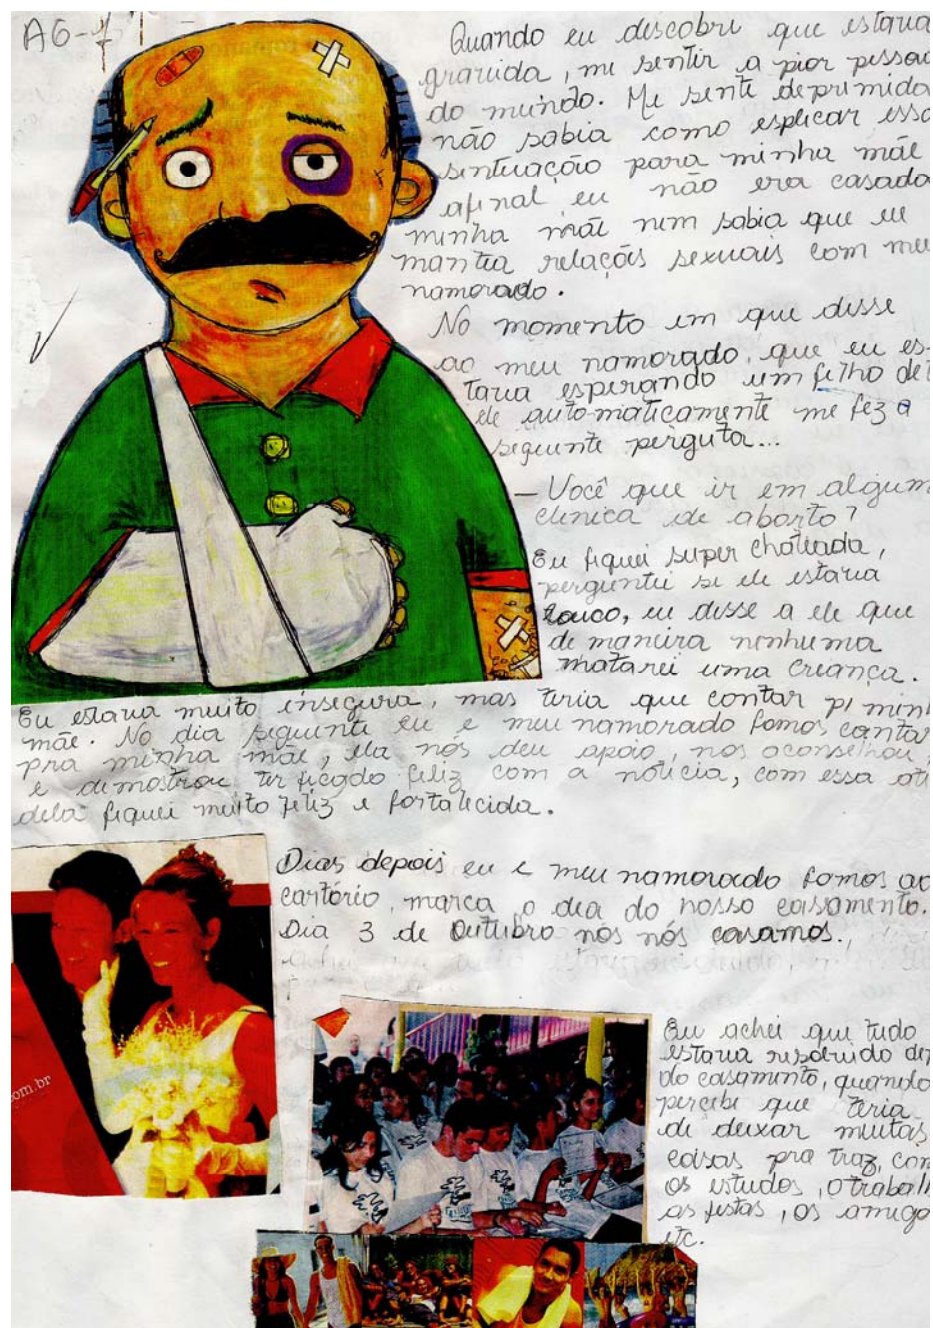 A6-1
Quando eu descobri que estava
gravida, me sentir a pior pessoa
do mundo. Me sente deprimida
não sabia como esplicar essa
sintuação para minha mãe
afinal eu não era casada
minha mãe nem sabia que eu
mantia relaçãis sexuais com meu
namorado.
No momento em que disse
ao meu namorado, que eu es-
tava esperando um filho de
ele auto-maticamente me fez a
seguinte perguta...
— Você que ir em algum
clinica de aborto?
Eu fiquei super chateada,
perguntei se ele estava
louco, eu disse a ele que
de maneira nenhuma
matarei uma criança.
Eu estava muito insegura, mas teria que contar p/ minh
mãe. No dia seguinte eu e meu namorado fomos contar
pra minha mãe, ela nós deu apoio, nos aconselhou,
e demostrou ter ficado feliz com a notícia, com essa ati
dela fiquei muito feliz e fortalecida.
Dias depois eu e meu namorado fomos ao
cartório, marca o dia do nosso casamento.
Dia 3 de Outubro nós nós casamos.
om.br
Eu achei que tudo
estava resolvido dep
do casamento, quando
percebi que teria
di deixar muitas
coisas pra traz, com
os estudos, o trabalh
as festas, os amigo
etc.